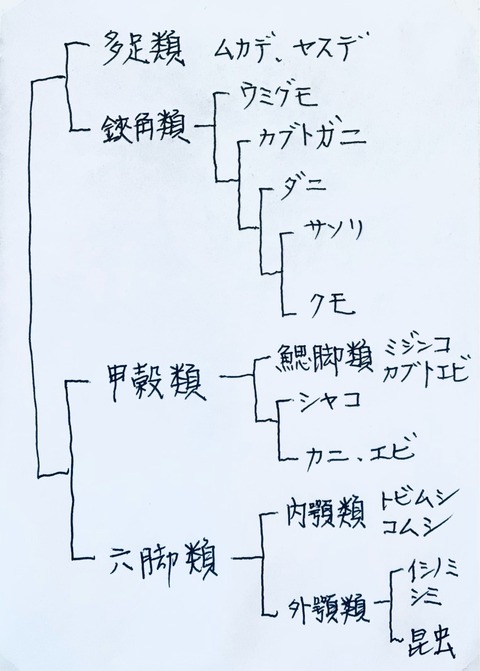 多足類 ムカデ、ヤスデ
鋏角類
ウミグモ
カブトガニ
ダニ
サソリ
クモ
甲殻類
鰓脚類 ミジンコ
カブトエビ
シャコ
カニ、エビ
六脚類
内顎類 トビムシ
コムシ
外顎類
イシノミ
シミ
昆虫